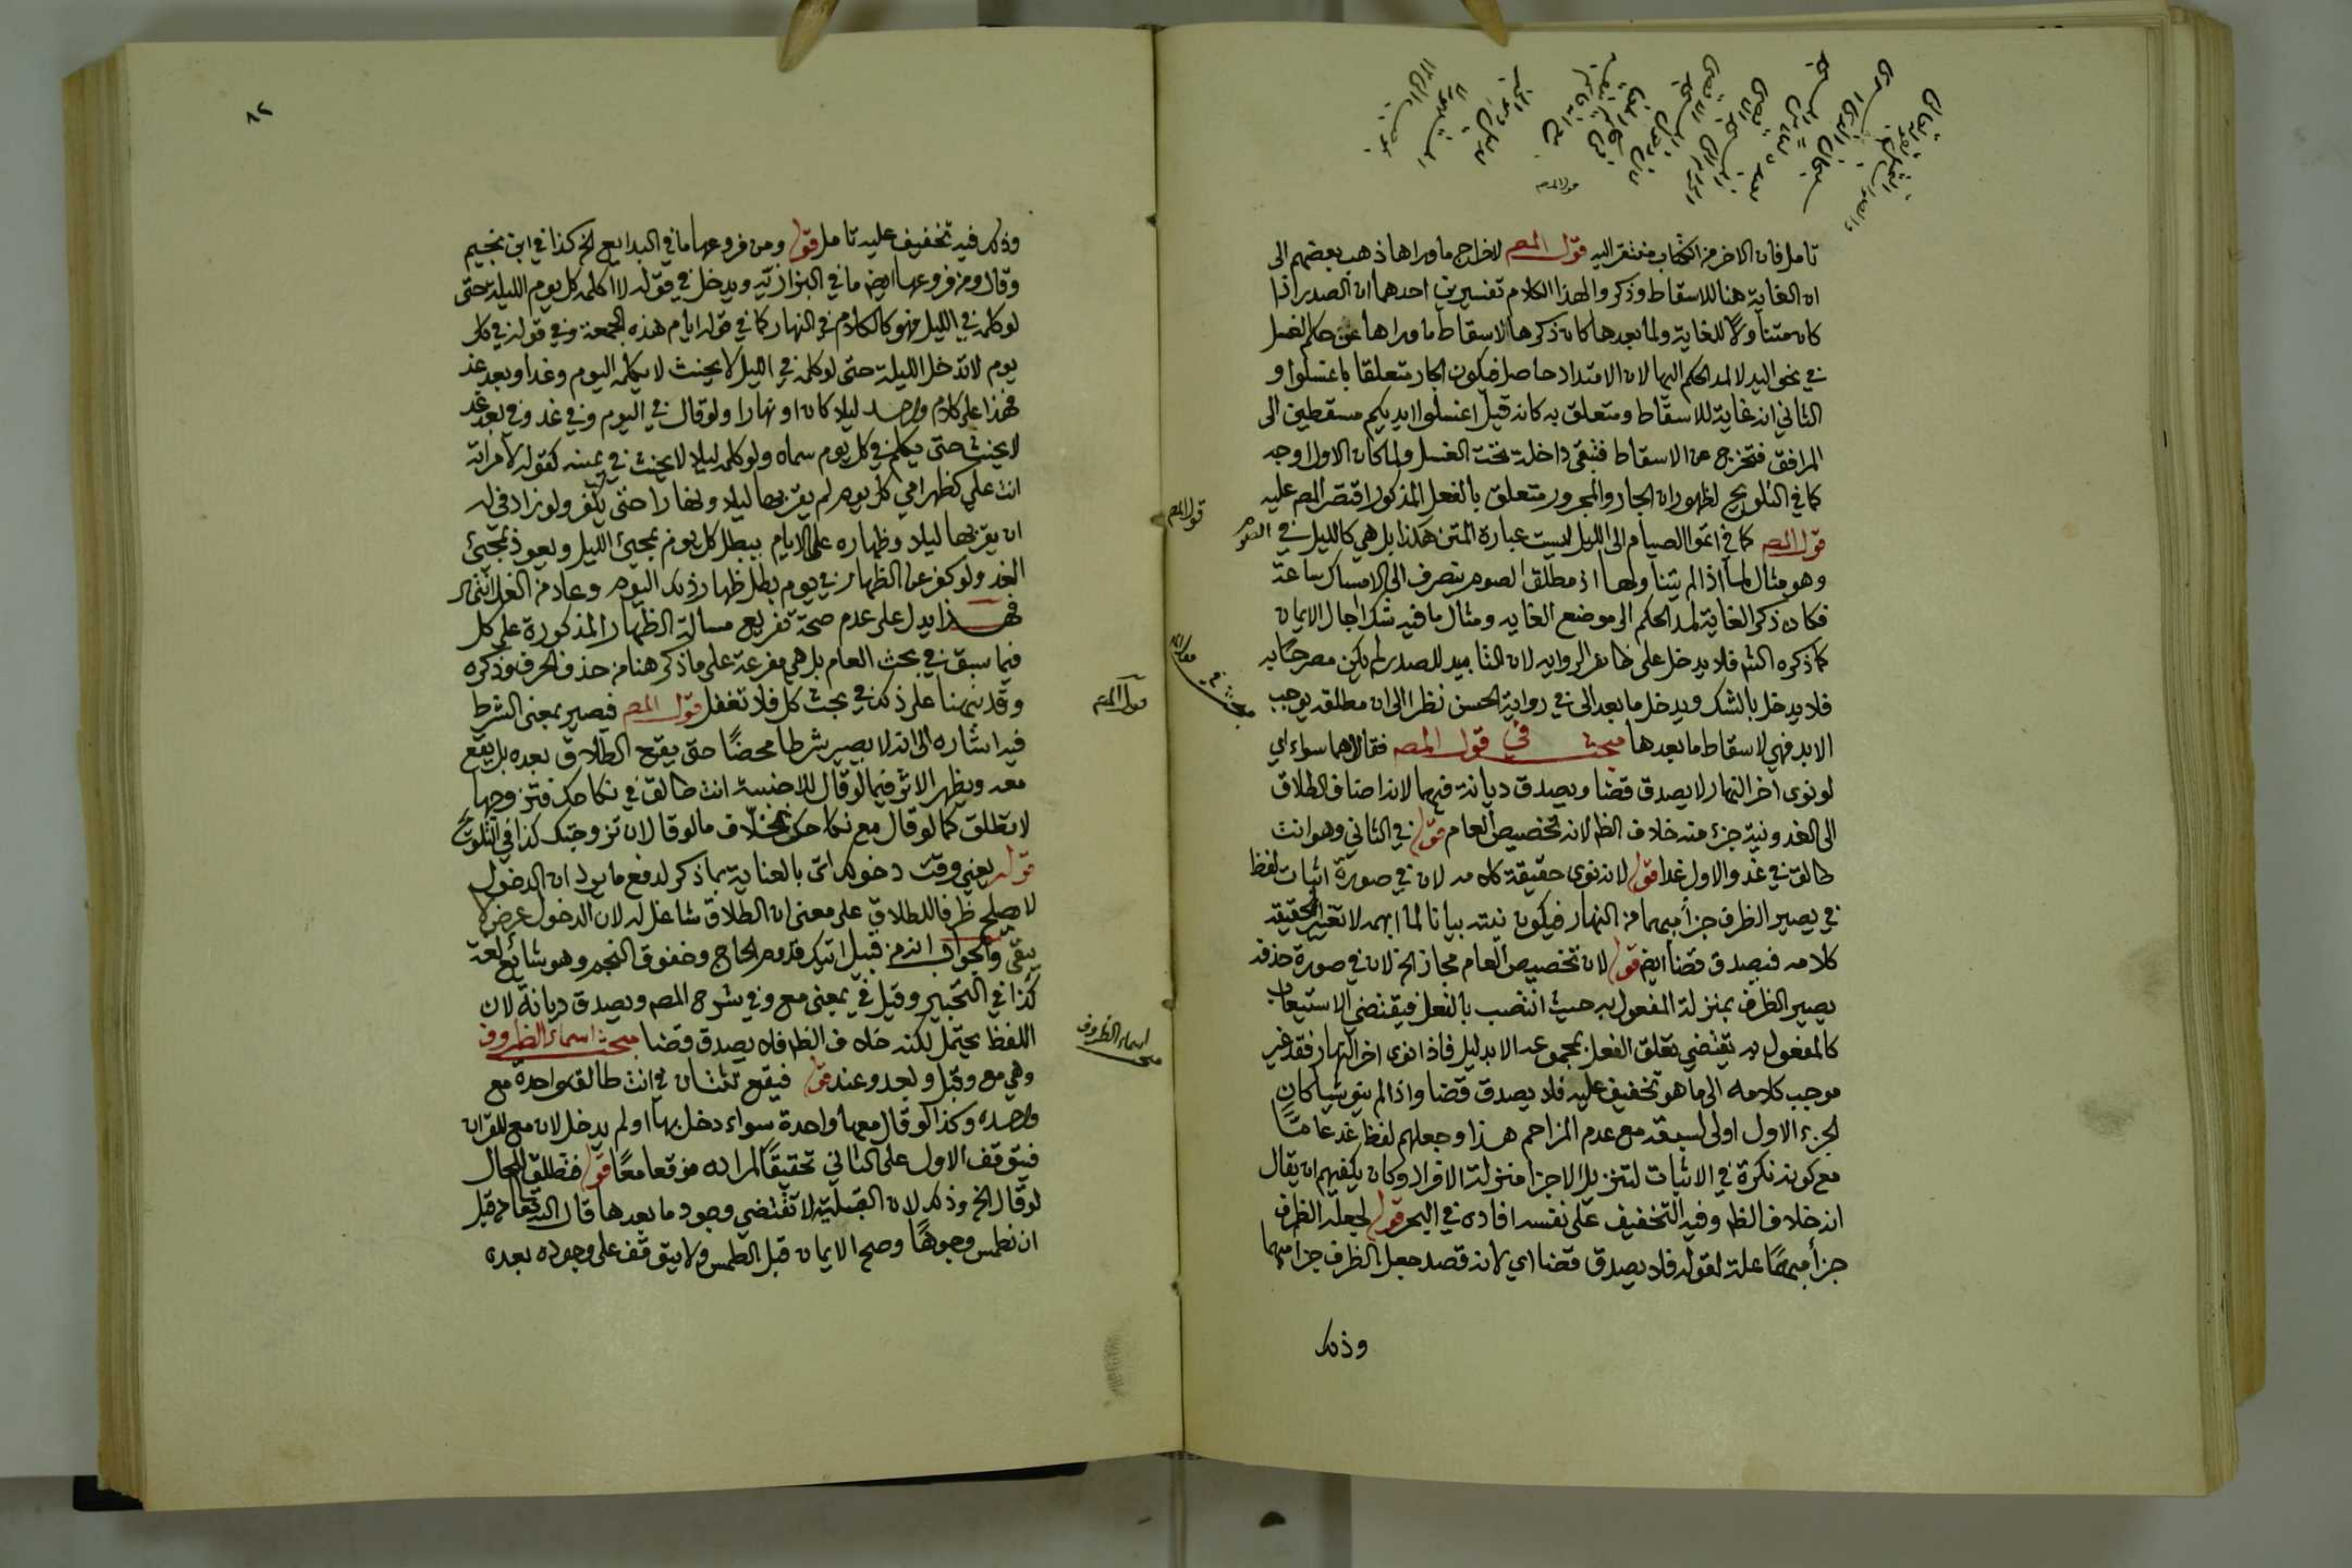 تامل فان الاخر من الكتاب مفتقر اليه قول المصـ لاخراج ما وراها ذهب بعضهم الى
ان الغاية هنا للاسقاط وذكروا لهذا الكلام تفسيرين احدهما ان الصدر اذا
كان متناولا للغاية ولما بعدها كان ذكرها لاسقاط ما وراها عن حكم الغسل
في نحو اليد لا لمد الحكم اليها لان الامتداد حاصل فيكون الجار متعلقا باغسلوا و
الثاني انه غاية للاسقاط ومتعلق به كانه قيل اغسلوا ايديكم مسقطين الى
المرافق فتخرج عن الاسقاط فتبقى داخلة تحت الغسل ولما كان الاول اوجه
كما في التلويح لظهور ان الجار والمجرور متعلق بالفعل المذكور اقتصر المص عليه
قول المصـ كما في اتموا الصيام الى الليل ليست عبارة المتن هكذا بل هي كالليل في الصوم
وهو مثال لما اذا لم يتناولها اذ مطلق الصوم ينصرف الى الامساك ساعة
فكان ذكر الغاية لمد الحكم الى موضع الغايه ومثال ما فيه شك اجال الايمان
كما ذكره الشـ فلا يدخل على ظاهر الروايه لان التابيد للصدر لم يكن مصرحا به
فلا يدخل بالشك ويدخل ما بعد الى في رواية الحسن نظرا الى ان مطلقه يوجب
الابد فهي لاسقاط ما بعدها مبحث في قول المصـ فقالا هما سواء اي
لو نوى اخر النهار لا يصدق قضا ويصدق ديانة فيهما لانه اضاف الطلاق
الى الغد ونية جزء منه خلاف الظ لانه تخصيص العام قوله في الثاني وهو انت
طالق في غد والاول غدا قوله لانه نوى حقيقة كلامه لان في صورة اثبات لفظ
في يصير الظرف جزأ مبهما من النهار فيكون نيته بيانا لما ابهمه لا تغيير الحقيقة
كلامه فيصدق قضا ايض قوله لان تخصيص العام مجاز الخ لان في صورة حذفه
يصير الظرف بمنزلة المفعول به حيث انتصب بالفعل فيقتضي الاستيعاب
كالمفعول به تقتضي تعلق الفعل بمجموعه الا بدليل فاذا نوى اخر النهار فقد غير
موجب كلامه الى ما هو تخفيف عليه فلا يصدق قضا واذا لم ينو شيا كان
الجزء الاول اولى لسبقه مع عدم المزاحم هذا وجعلهم لفظ غد عامًّا
مع كونه نكرة في الاثبات لتنزيل الاجزا منزلة الافراد وكان يكفيهم ان يقال
انه خلاف الظ وفيه التخفيف على نفسه افاده في البحر قوله لجعله الظرف
جزأ مبهما علة لقوله فلا يصدق قضا اي لانه قصد جعل الظرف جزا مبهما
وذلك
٨٢
وذلك فيه تخفيف عليه تامل قوله ومن فروعها ما في البدايع الخ كذا في ابن نجيم
وقال ومن فروعها ايض ما في البزازية ويدخل في قوله لا اكلمه كل يوم الليلة حتى
لو كلمه في الليل فهو كالكلام في النهار كما في قوله ايام هذه الجمعة وفي قوله في كل
يوم لا تدخل الليلة حتى لو كلمه في الليل لا يحنث لا يكلمه اليوم وغدا وبعد غد
فهذا على كلام واحد ليلا كان او نهارا ولو قال في اليوم وفي غد وفي بعد غد
لا يحنث حتى يكلمه في كل يوم سماه ولو كلمه ليلا لا يحنث في يمينه كقوله لامراته
انت علي كظهر امي كل يوم لم يقربها ليلا ونهارا حتى يكفر ولو زاد في له
ان يقربها ليلا وظهاره على الايام يبطل كل يوم بمجيئ الليل ويعود بمجيئ
الغد ولو كفر عن الظهار في يوم بطل ظهار ذلك اليوم وعاد من الغد انتهى
فهـذا يدل على عدم صحة تفريع مسالة الظهار المذكورة على كل
فيما سبق في بحث العام بل هي مفرعة على ما ذكر هنا من حذف الحرف وذكره
وقد نبهنا على ذلك في بحث كل فلا تغفل قول المصـ فيصير بمعنى الشرط
فيه اشاره الى انه لا يصير شرطا محضًا حتى يقع الطلاق بعده بل يقع
معه ويظهر الاثر فيما لو قال للاجنبية انت طالق في نكاحك فتزوجها
لا تطلق كما لو قال مع نكاحك بخلاف ما لو قال ان تزوجتك كذا في التلويح
قوله يعني وقت دخولك اتى بالعناية بما ذكر لدفع ما يرد ان الدخول
لا يصلح ظرفا للطلاق على معنى ان الطلاق شاغل له لان الدخول عرض لا
يبقى والجواب انه من قبيل اتيتك قدوم الحاج وخفوق النجم وهو شائع لغة
كذا في التحبير وقيل في بمعنى مع وفي شرح المصـ ويصدق ديانة لان
اللفظ يحتمل لكنه خلاف الظ فلا يصدق قضا مبحث اسماء الظروف
وهي مع وقبل وبعد وعند قوله فيقع ثنتان في انت طالق واحدة مع
واحده وكذا لو قال معها واحدة سواء دخل بها اولم يدخل لان مع للقران
فيتوقف الاول على الثاني تحقيقًا لمراده فوقعا معًا قوله فتطلق للحال
لو قال الخ وذلك لان القبلية لا تقتضي وجود ما بعدها قال الله تعالى من قبل
ان نطمس وجوهًا وصح الايمان قبل الطمس ولا يتوقف على وجوده بعده
قول المصـ
اسماء الظروف